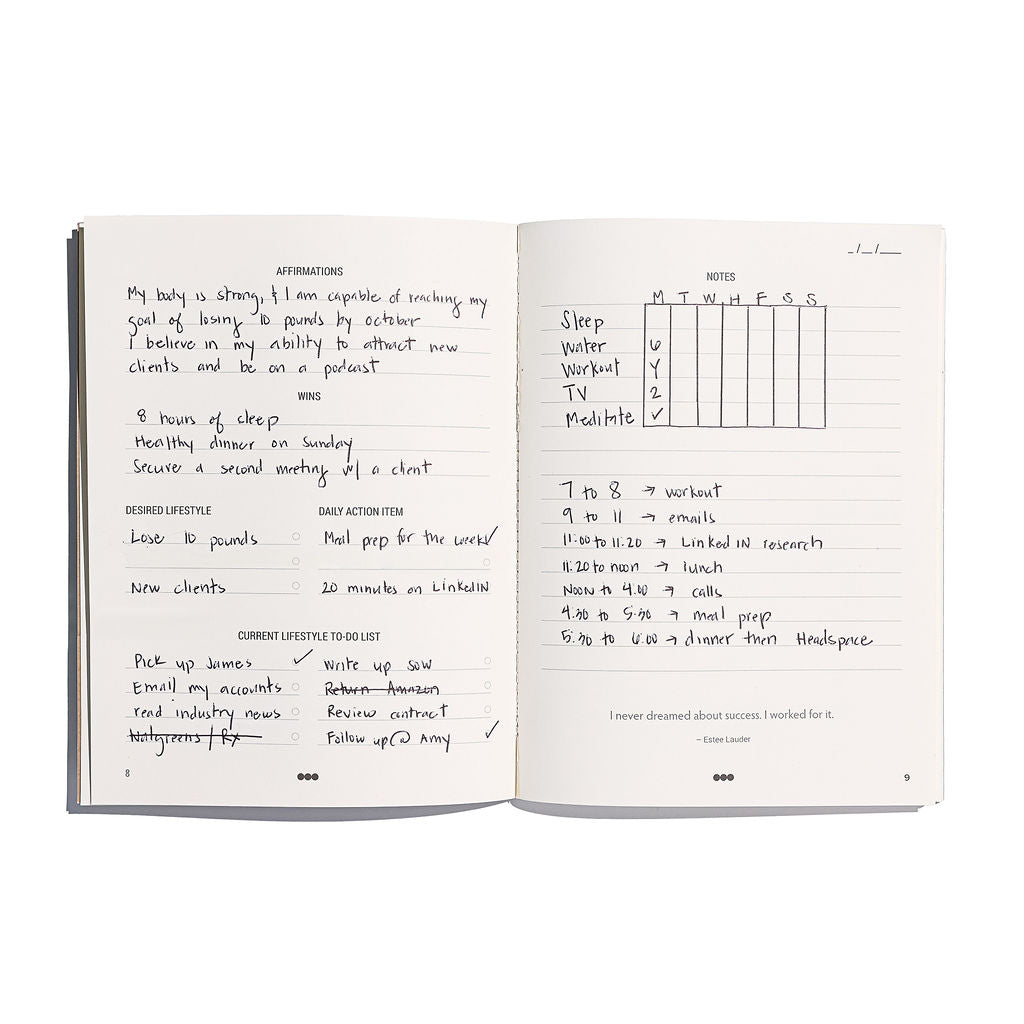 AFFIRMATIONS
My body is strong, & I am capable of reaching my
goal of losing 10 pounds by october
I believe in my ability to attract new
clients and be on a podcast
WINS
8 hours of sleep
Healthy dinner on Sunday
Secure a second meeting w/ a client
DESIRED LIFESTYLE
Lose 10 pounds
New clients
DAILY ACTION ITEM
Meal prep for the week ✓
20 minutes on LinkedIN
CURRENT LIFESTYLE TO-DO LIST
Pick up James ✓
Email my accounts
read industry news
Walgreens / Rx
Write up SOW
Return Amazon
Review contract
Follow up @ Amy ✓
8
_/_/__
NOTES
M T W H F S S
Sleep
Water 6
Workout Y
TV 2
Meditate ✓
7 to 8 → workout
9 to 11 → emails
11:00 to 11:20 → Linked IN research
11:20 to noon → lunch
Noon to 4:00 → calls
4:30 to 5:30 → meal prep
5:30 to 6:00 → dinner then Headspace
I never dreamed about success. I worked for it.
– Estee Lauder
9